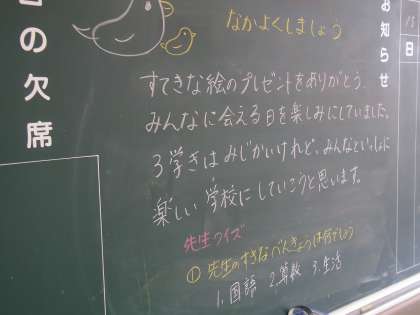 なかよくしましょう
お知らせ
日
の欠席
すてきな絵のプレゼントをありがとう。
みんなに会える日を楽しみにしていました。
3学きは みじかいけれど、みんなといっしょに
楽しい学校にしていこうと思います。
先生クイズ
①先生のすきなべんきょうは何でしょう
1.国語 2.算数 3.生活